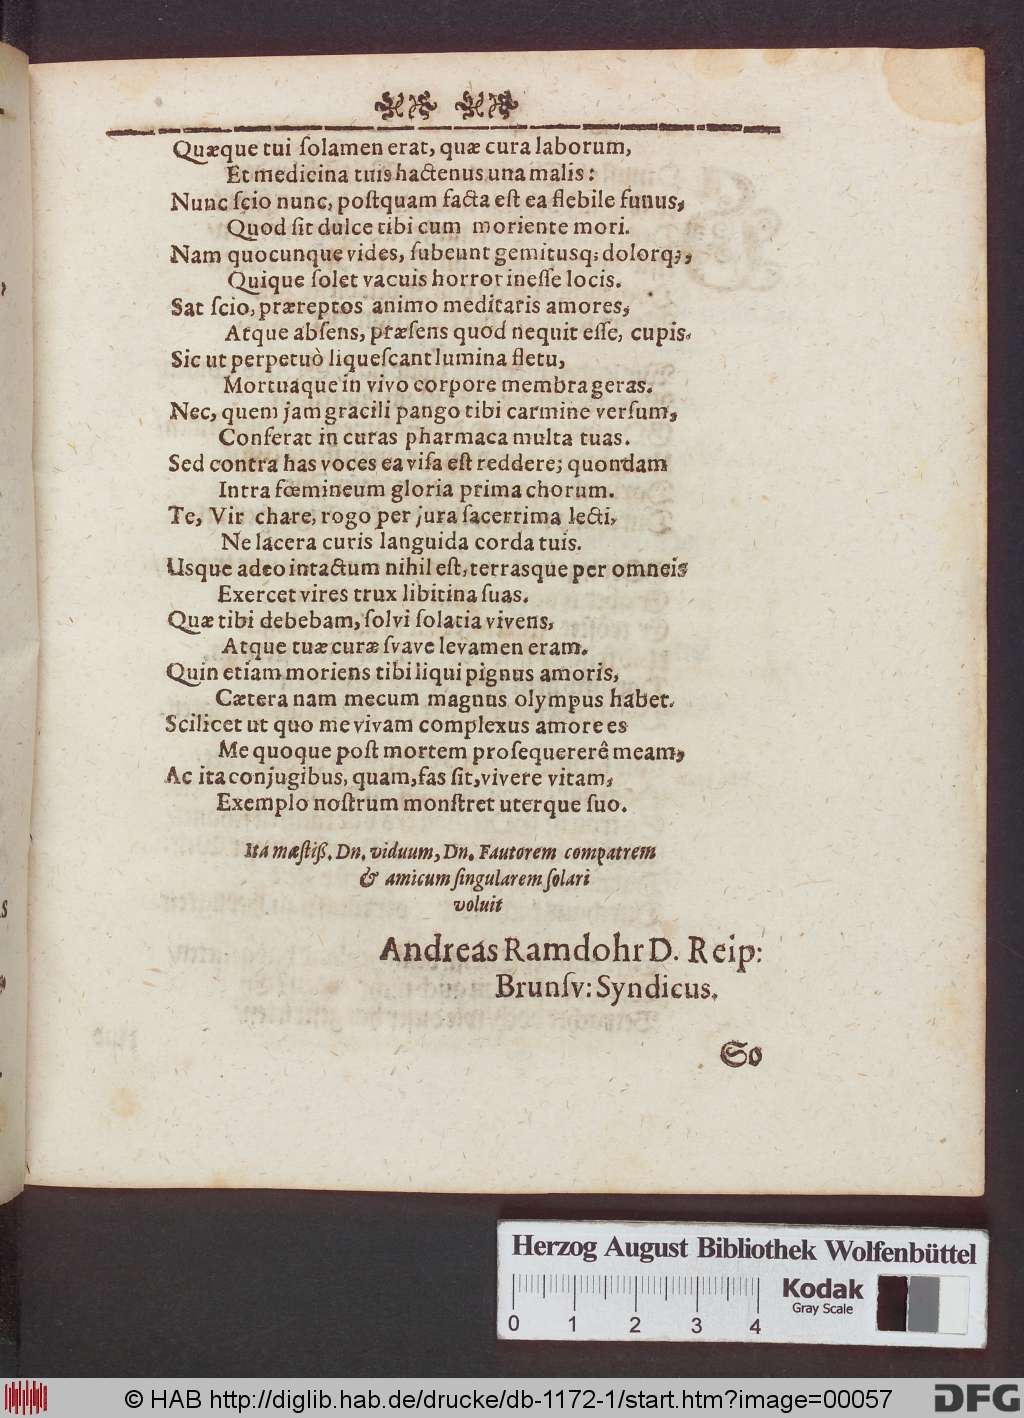 Quæque tui ſolamen erat, quæ cura laborum,
Et medicina tuis hactenus una malis:
Nunc ſcio nunc, poſtquam facta eſt ea flebile funus,
Quod ſit dulce tibi cum moriente mori.
Nam quocunque vides, ſubeunt gemitusq; dolorq;,
Quique ſolet vacuis horror ineſſe locis.
Sat ſcio, præreptos animo meditaris amores,
Atque abſens, præſens quod nequit eſſe, cupis.
Sic ut perpetuò liqueſcant lumina fletu,
Mortuaque in vivo corpore membra geras.
Nec, quem jam gracili pango tibi carmine verſum,
Conferat in curas pharmaca multa tuas.
Sed contra has voces ea viſa eſt reddere; quondam
Intra fœmineum gloria prima chorum.
Te, Vir chare, rogo per jura ſacerrima lecti,
Ne lacera curis languida corda tuis.
Usque adeo intactum nihil eſt, terrasque per omneis
Exercet vires trux libitina ſuas.
Quæ tibi debebam, ſolvi ſolatia vivens,
Atque tuæ curæ ſvave levamen eram.
Quin etiam moriens tibi liqui pignus amoris,
Cætera nam mecum magnus olympus habet.
Scilicet ut quo me vivam complexus amore es
Me quoque poſt mortem proſequererê meam,
Ac ita conjugibus, quam, fas ſit, vivere vitam,
Exemplo noſtrum monſtret uterque ſuo.
Ita mæſtiß. Dn. viduum, Dn. Fautorem compatrem
& amicum ſingularem ſolari
voluit
Andreas Ramdohr D. Reip:
Brunſv: Syndicus.
So
Herzog August Bibliothek Wolfenbüttel
Kodak
Gray Scale
0 1 2 3 4
© HAB http://diglib.hab.de/drucke/db-1172-1/start.htm?image=00057
DFG